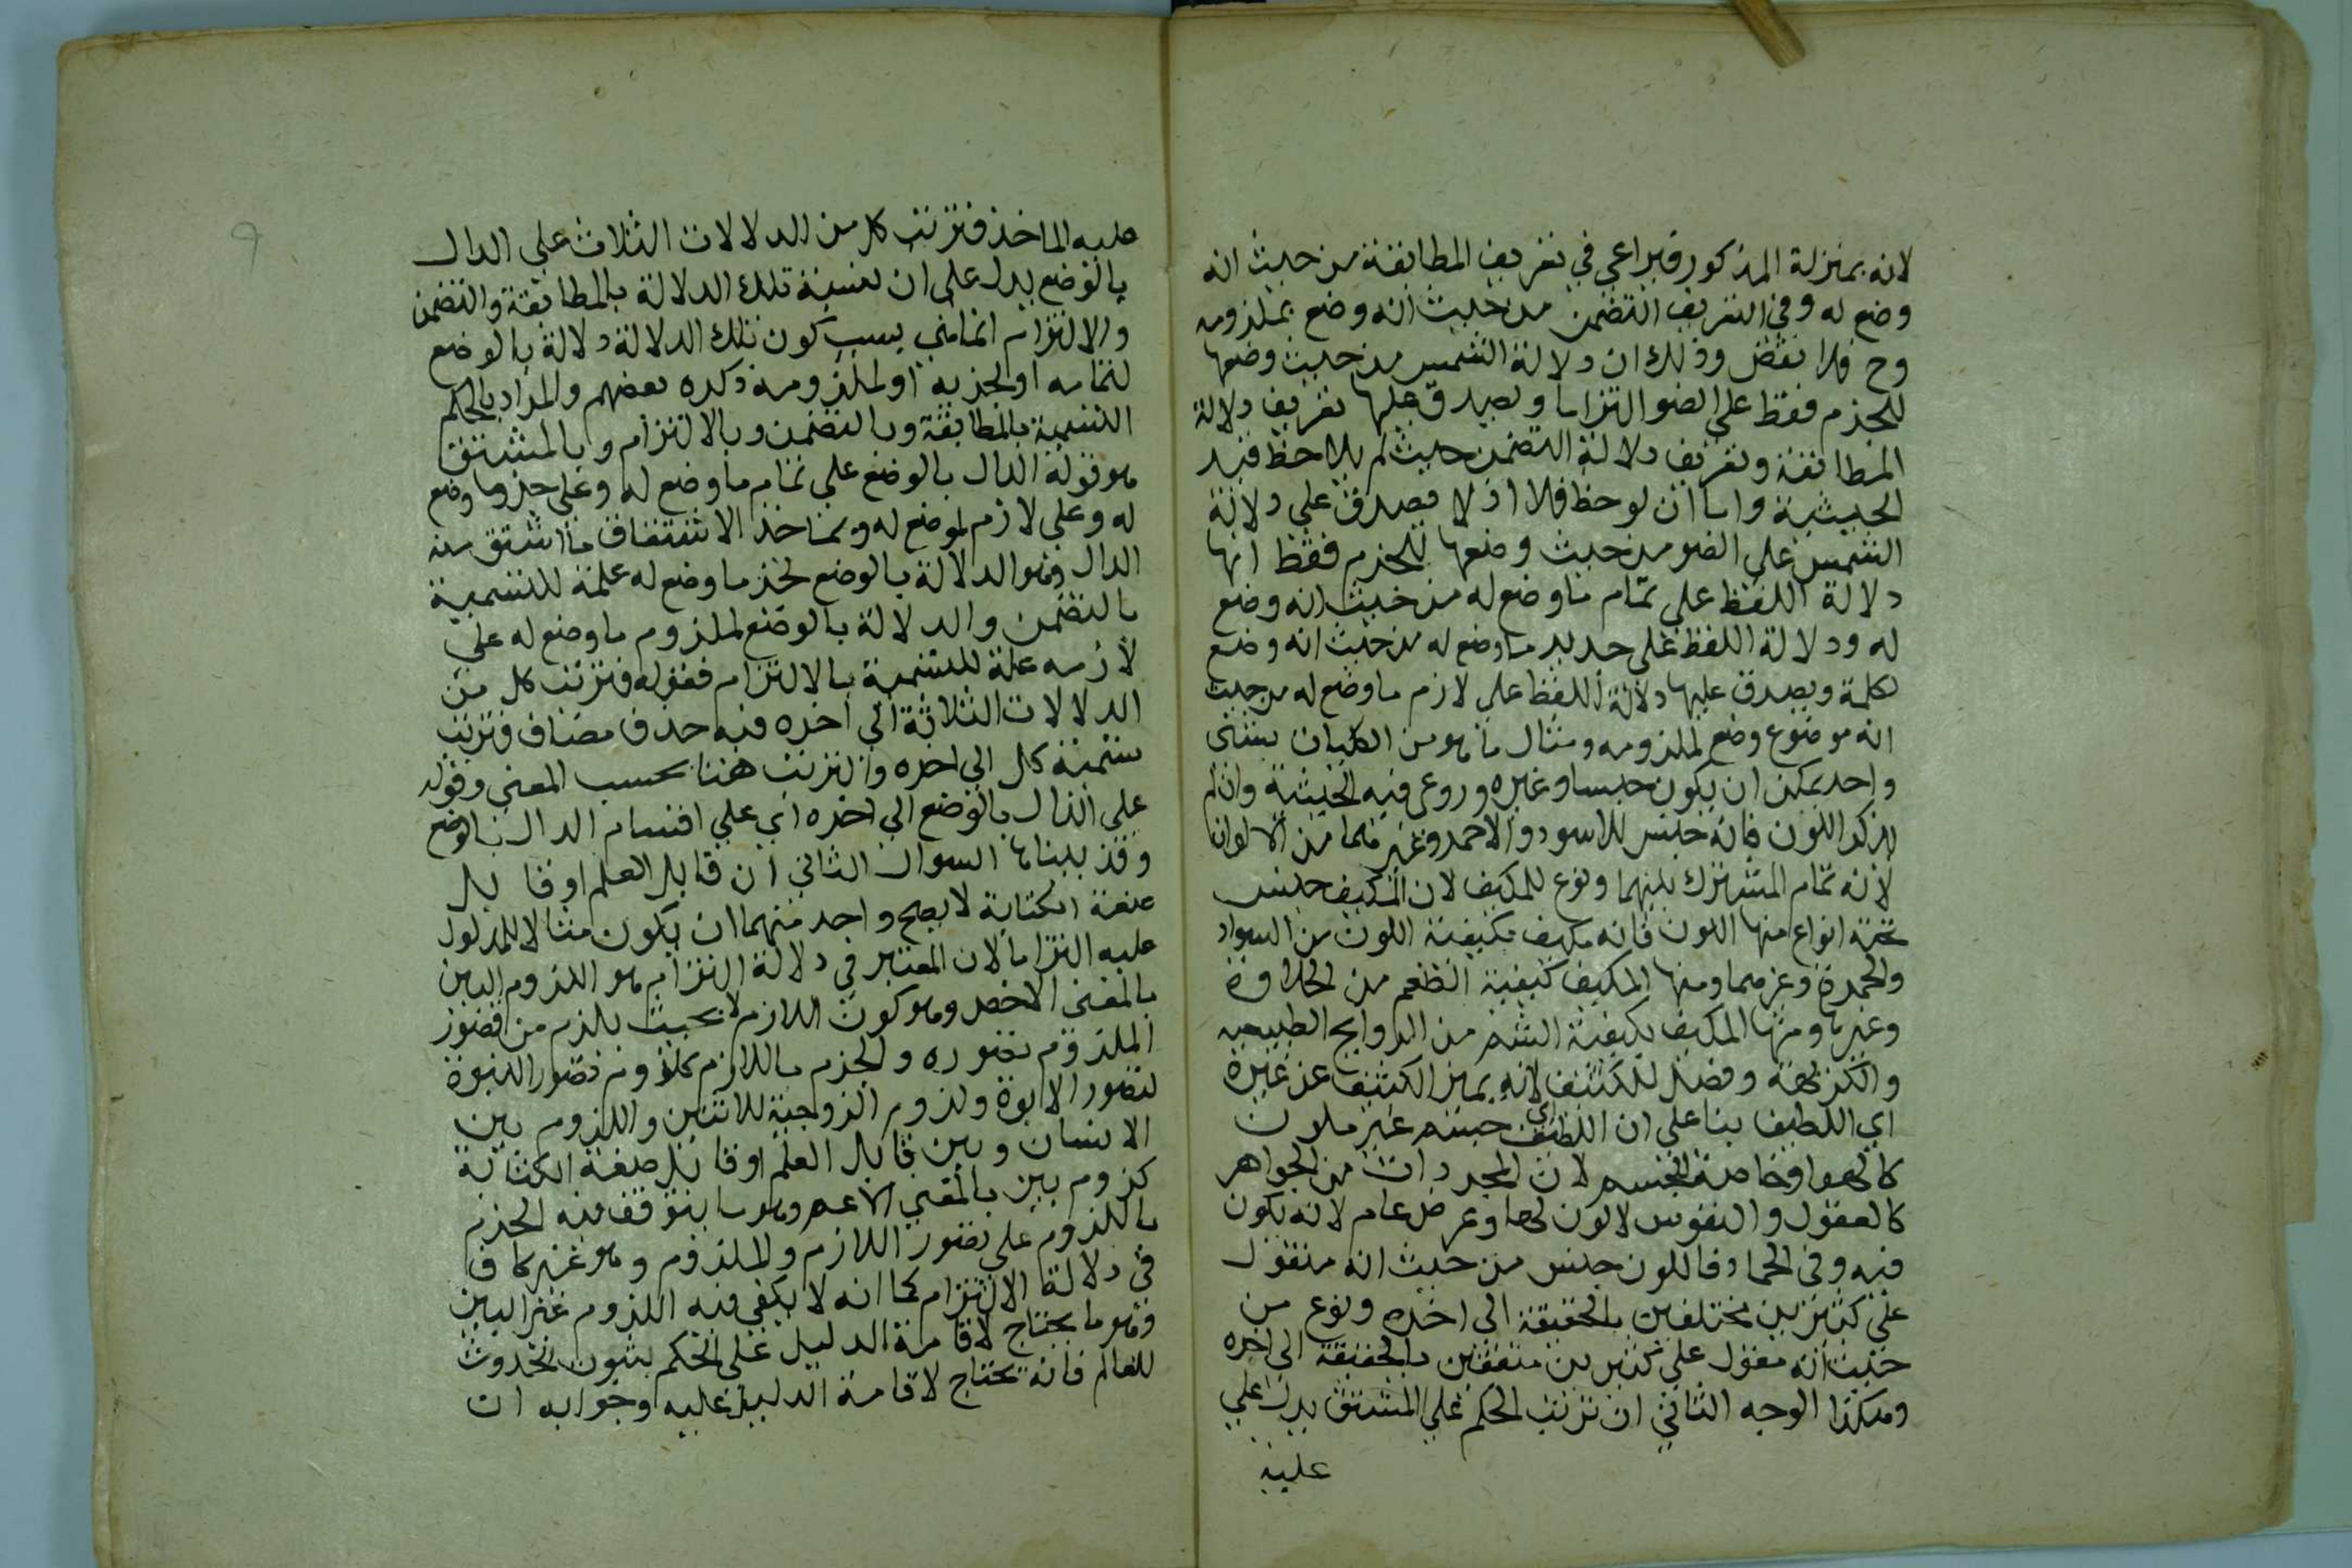 لانه بمنزلة المذكور فيراعي في تعريف المطابقة من حيث انه
وضع له وفي التعريف التضمن من حيث انه وضع بملزومه
وح فلا نقض وذلك ان دلالة الشمس من حيث وضعها
للجزم فقط على الضو التزاما ويصدق عليها تعريف دلالة
المطابقة وتعريف دلالة التضمن حيث لم يلاحظ قيد
الحيثية واما ان لوحظ فلا اذ لا يصدق على دلالة
الشمس على الضو من حيث وضعها للجزم فقط انها
دلالة اللفظ على تمام ما وضع له من حيث انه وضع
له ودلالة اللفظ على ما وضع له من حيث انه وضع
لكلمة ويصدق عليها دلالة اللفظ على لازم ما وضع له من حيث
انه موضوع وضع لملزومه ومثال ما هو من الكليات بشئ
واحد يمكن ان يكون جنسا وغيره وروعي فيه الحيثية وان لم
يذكر اللون فانه جنس للاسود والاحمر وغيرهما من الالوان
لانه تمام المشترك بينهما ونوع للمكيف لان المكيف جنس
تحته انواع منها اللون فانه مكيف بكيفية اللون من السواد
والحمرة وغيرهما ومنها المكيف كيفية الطعم من الحلاوة
وغيرها ومنها المكيف بكيفية الشم من الروايح الطيبه
والكريهة وفصل للكثيف لانه يميز الكثيف عن غيره
اي اللطيف بنا على ان اللطيف اي جسم غير ملون
كالهوا وخاصة للجسم لان المجردات من الجواهر
كالعقول والنفوس لا لون لها وعرض عام لانه يكون
فيه وفي الجماد فاللون جنس من حيث انه منقول
على كثيرين مختلفين بالحقيقة الى اخره ونوع من
حيث انه مقول على كثيرين متفقين بالحقيقة الى اخره
وهكذا الوجه الثاني ان ترتب الحكم على المشتق يدل على
علية
علية الماخذ فترتب كل من الدلالات الثلاث على الدال
بالوضع يدل على ان تسمية تلك الدلالة بالمطابقة والتضمن
والالتزام انما هي بسبب كون تلك الدلالة دلالة بالوضع
لتمامه او لجزيه او لملزومه ذكره بعضهم والمراد بالحكم
التسمية بالمطابقة وبالتضمن وبالالتزام وبالمشتق
هو قوله الدال بالوضع على تمام ما وضع له وعلى جزو ما وضع
له وعلى لازم لموضع له وبماخذ الاشتقاق ما اشتق منه
الدال وهو الدلالة بالوضع لجز ما وضع له علة للتسمية
بالتضمن والدلالة بالوضع لملزوم ما وضع له على
لازمه علة للتسمية بالالتزام فقوله فترتب كل من
الدلالات الثلاثة الى اخره فيه حذف مضاف فترتب
تسمية كل الى اخره والترتب هنا بحسب المعنى وقوله
على الدال بالوضع الى اخره اي على اقسام الدال بالوضع
وقد بيناها السوال الثاني ان قابل العلم او قابل
صنعة الكتابة لا يصح واحد منهما ان يكون مثالا للمدلول
عليه التزاما لان المعتبر في دلالة التزام هو اللزوم البين
بالمعنى الاخص وهو كون اللازم لا بحيث يلزم من تصور
الملزوم تصوره والجزم باللازم كلزوم تصور البنوة
لتصور الابوة ولزوم الزوجية للاثنين واللزوم بين
الانسان وبين قابل العلم او قابل صنعة الكتابة
لزوم بين بالمعنى الاعم وهو ما يتوقف فيه الجزم
باللزوم على تصور اللازم والملزوم وهو غير كاف
في دلالة الالتزام كما انه لا يكفي فيه اللزوم غير البين
وهو ما يحتاج لاقامة الدليل على الحكم بثبوت الحدوث
للعالم فانه يحتاج لاقامة الدليل عليه وجوابه ان